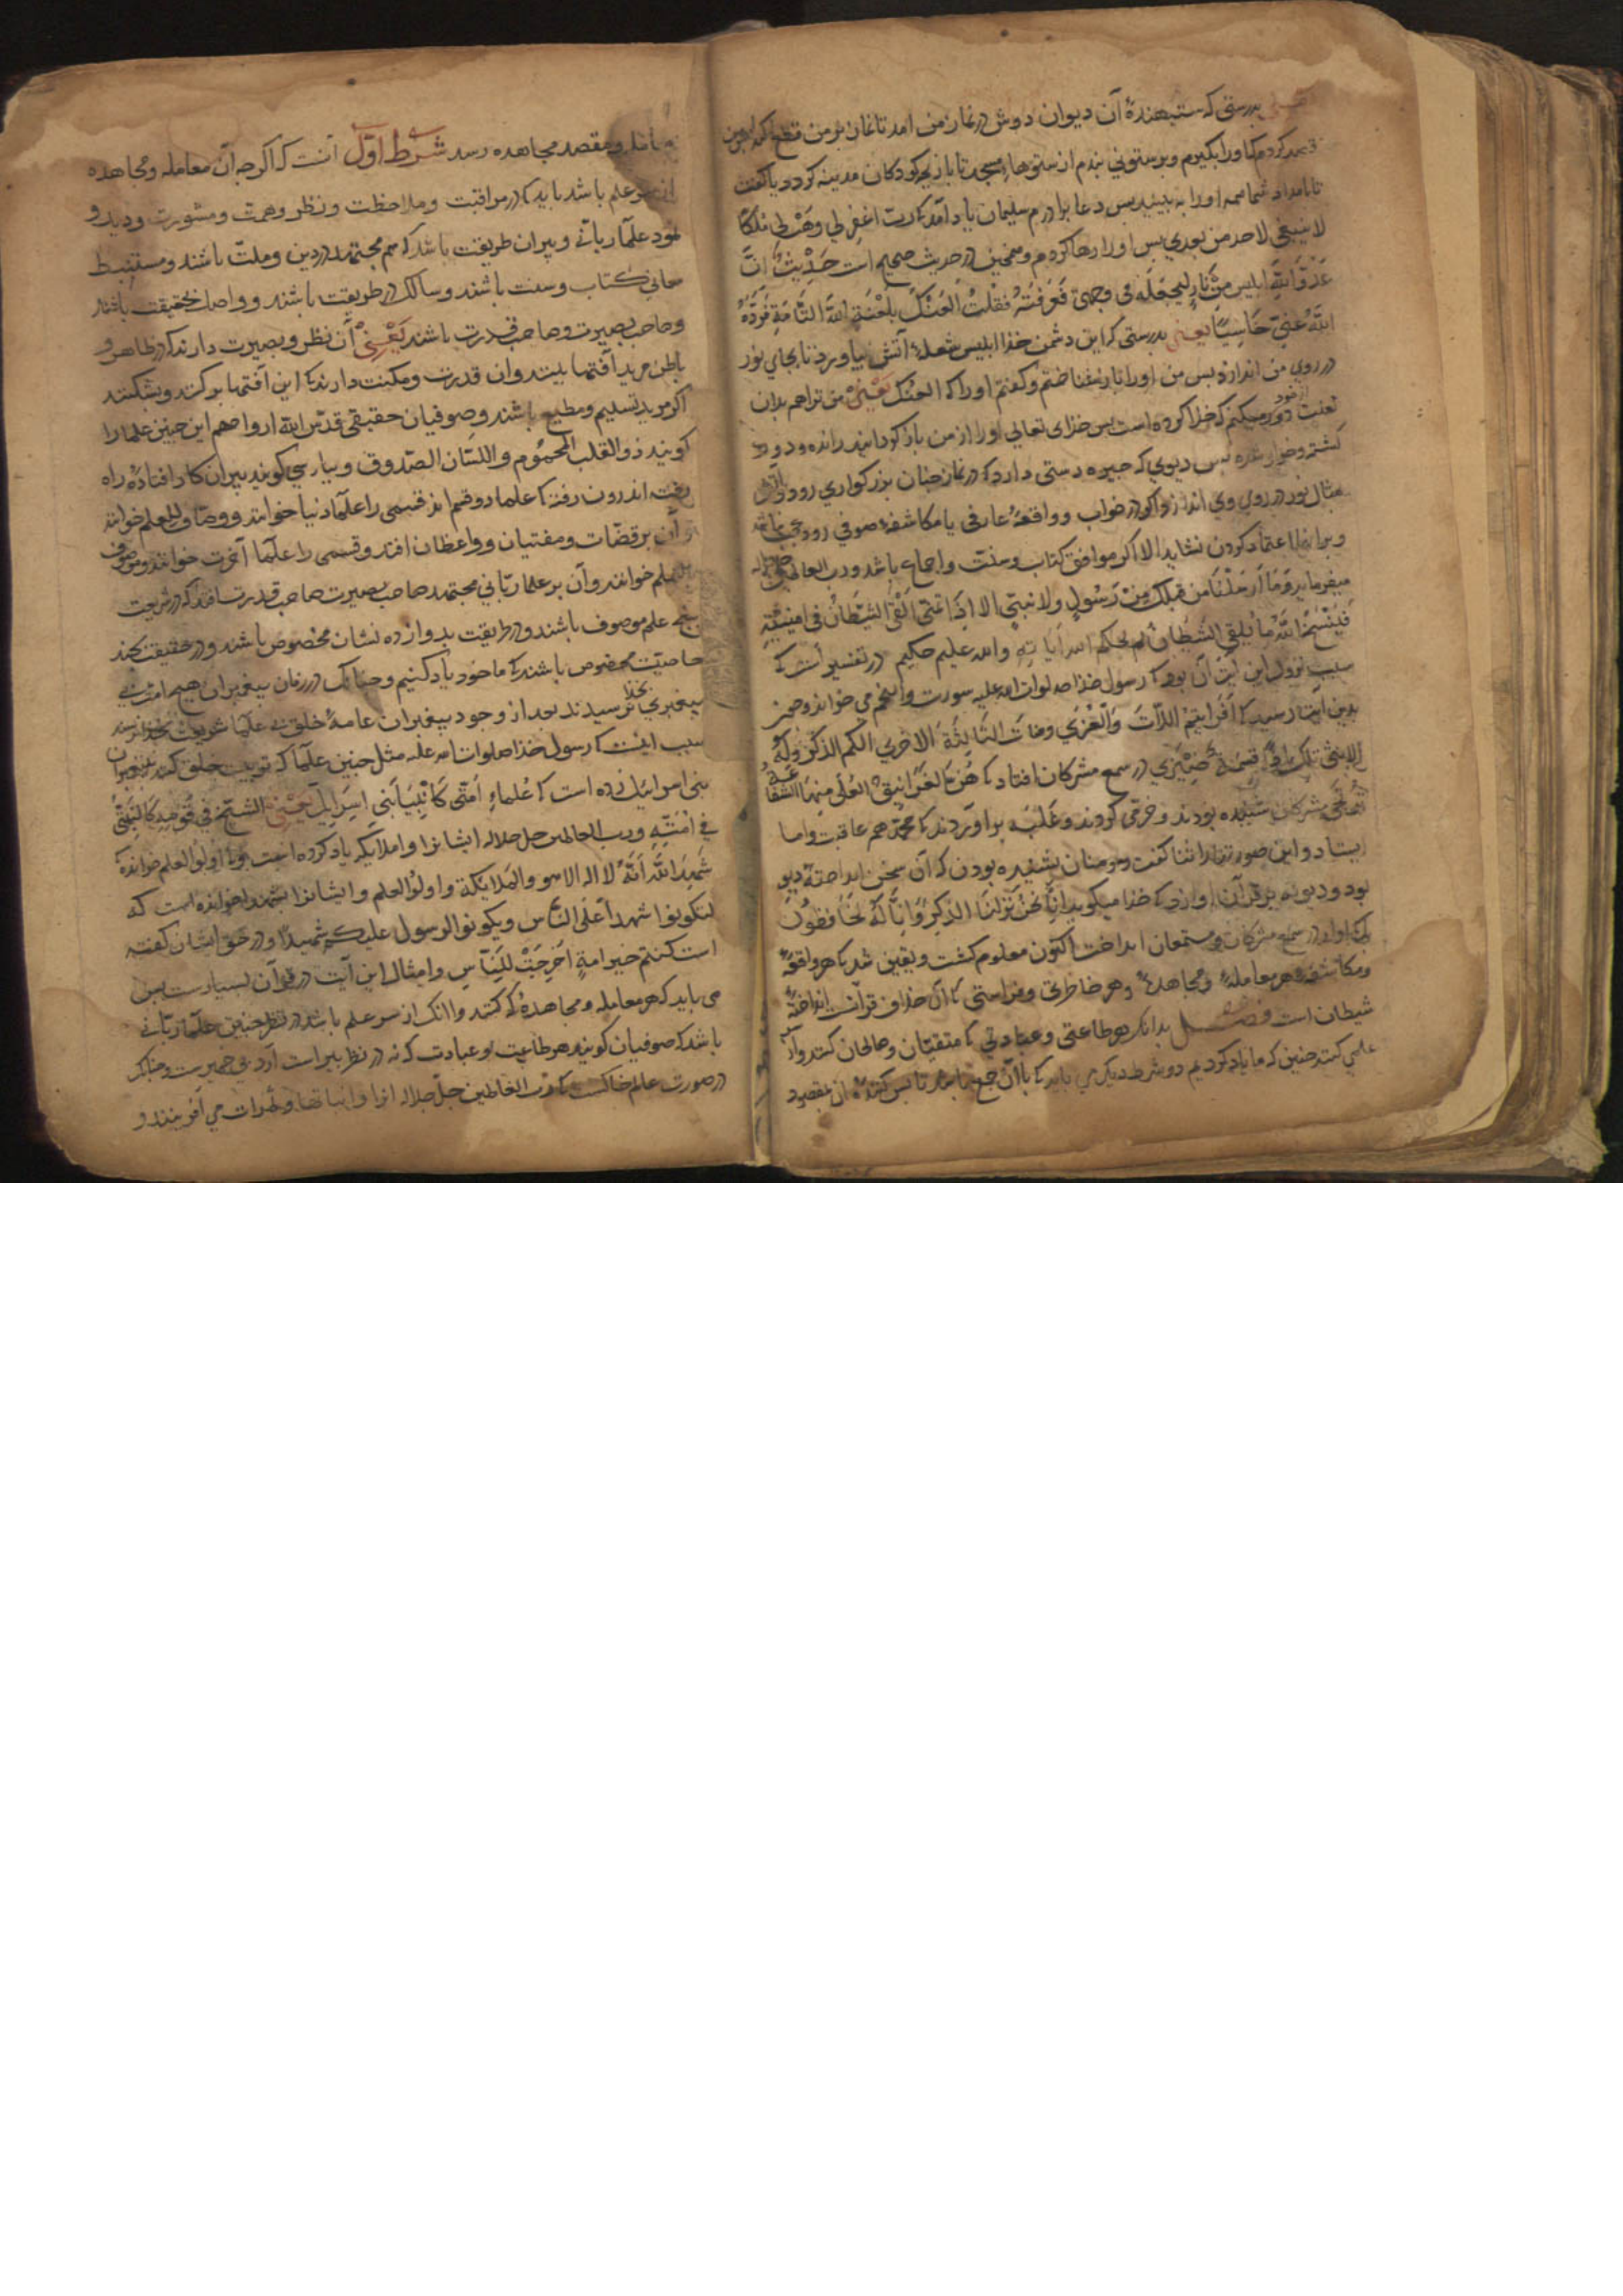 بدرستی که ستبهندهٔ آن دیوان دوش در نماز من امد تا نماز بر من قطع کند پس
قصد کردم کاورا بکیرم و برستونی بندم از ستونهاء مسجد تا بازیچه کودکان مدینه کردد یا کفت
تا بامداد شما همه اورا به بینید پس دعا برادرم سلیمان یاد آمد که رب اغفرلی وهب لی ملکا
لا ینبغی لاحد من بعدی پس اورا رها کردم و همچنین در حدیث صحیح است حدیث ان
عدو الله ابلیس من نار لیجعله فی وجهی فعرفته فقلت العنک بلعنة الله التامة فرده
الله عنی خاسیا یعنی بدرستی که این دشمن خذا ابلیس شعلهٔ آتش بیاورد تا بجای نور
در روی من اندازد پس من اورا باز شناختم و کفتم اورا که العنک یعنی من تراهم بدان
لعنت از خود دور میکنم که خذا کرده است پس خذای تعالی اورا از من باز کردانید رانده و دور
کشته و خوار شده پس دیوی که چیره دستی دارد که در نماز چنان بزرکواری رود و آتش
مثال نور در روی وی اندازد اکر در خواب و واقعهٔ عارفی یا مکاشفهٔ صوفی رود عجب نباشد
و برانها اعتماد کردن نشاید الا اکر موافق کتاب و سنت و اجماع باشد و رب العالمین جل جلاله
میفرماید وما ارسلنا من قبلک من رسول ولا نبی الا اذا تمنی القی الشیطان فی امنیته
فینسخ الله ما یلقی الشیطان ثم یحکم الله آیاته والله علیم حکیم در تفسیر است که
سبب نزول این آیت آن بود که رسول خذا صلوات الله علیه سورت والنجم می خواند و چون
بدین آیت رسید که افرایتم اللات والعزی ومنات الثالثة الاخری الکم الذکر وله
الانثی تلک اذا قسمة ضیزی در سمع مشرکان افتاد که هن الغرانیق العلی منها الشفاعة
ترتجی مشرکان شنیده بودند و خرمی کردند و غلبه برآوردند که محمد هم عاقبت واما
ایستاد و این صورتها را ثنا کفت و مومنان نشنیده بودن که آن سخن انداخته دیو
بود و دیو نه بر قرآن اورد که خذا میکوید انا نحن نزلنا الذکر وانا له لحافظون
بلک اواز در سمع مشرکان و مستمعان انداخت اکنون معلوم کشت و یقین شد که هر واقعهٔ
و مکاشفهٔ و هر معاملهٔ و مجاهدهٔ و هر خاطری و فراستی که آن خذاف قرآنست انداختهٔ
شیطان است فصل بدانک هر طاعتی و عبادتی که متقیان و صالحان کنند و از
علمی کنند چنین که ما یاد کردیم دو شرط دیکر می باید که با آن جمع باشد تا پس کننده آن بمقصود
و مقصد مجاهده رسد شرط اول آنست که اکرچه آن معامله و مجاهده
از سر علم باشد باید که در مراقبت و ملاحظت و نظر و همت و مشورت و دید و
شهود علمآ ربانی و پیران طریقت باشد که هم مجتهد در دین و ملت باشند و مستنبط
معانی کتاب و سنت باشند و سالک در طریقت باشند و واصل بحقیقت باشند
و صاحب بصیرت و صاحب قدرت باشند یعنی آن نظر و بصیرت دارند که در ظاهر و
باطن مرید آفتها بینند و آن قدرت و مکنت دارند که این آفتها برکنند و بشکنند
اکر مرید تسلیم و مطیع باشند و صوفیان حقیقی قدس الله ارواحهم این چنین علما را
کویند ذو القلب المحموم و اللسان الصدوق و بپارسی کویند پیران کار افتاده راه
رفته اندرون رفته که علما دو قسم اند قسمی را علمآ دنیا خوانند و وصاف العلم خوانند
و آن بر قضات و مفتیان و واعظان افتد و قسمی را علمآ آخرت خوانند و موصوف
بالعلم خوانند و آن بر علما ربانی مجتهد صاحب بصیرت صاحب قدرت افتد که در شریعت
بپنج علم موصوف باشند و در طریقت بدوازده نشان مخصوص باشند و در حقیقت بچند
خاصیت مخصوص باشند که ما خود یاد کنیم و چنانک در زمان پیغمبران هیچ امت بی
پیغمبری بخدا نرسیدند بعد از وجود پیغمبران عامهٔ خلق بی علمآ شریعت بخدا نرسند
سبب اینست که رسول خذا صلوات الله علیه مثل چنین علمآ که تربیت خلق کنند به پیغمبران
بنی اسرائیل زده است که علماء امتی کانبیآء بنی اسرایل یعنی الشیخ فی قومه کالنبی
فی امته و رب العالمین جل جلاله ایشانرا و املایکه یاد کرده است و اولوا العلم خوانده
شهد الله انه لا اله الا هو والملایکة واولوا العلم و ایشانرا شهدا خوانده است که
لتکونوا شهدآ علی الناس ویکون الرسول علیکم شهیدا و در حق ایشان کفته
است کنتم خیر امة اخرجت للناس و امثال این آیت در قرآن بسیارست پس
می باید که هر معامله و مجاهدهٔ که کنند وا انک از سر علم باشد در نظر چنین علمآ ربانی
باشد که صوفیان کویند هر طاعت و عبادت که نه در نظر پیرانست آرد بی خمیرست و چنانک
در صورت عالم خاکست که رب العالمین جل جلاله انرا و نباتها و ثمرات می آفریند و